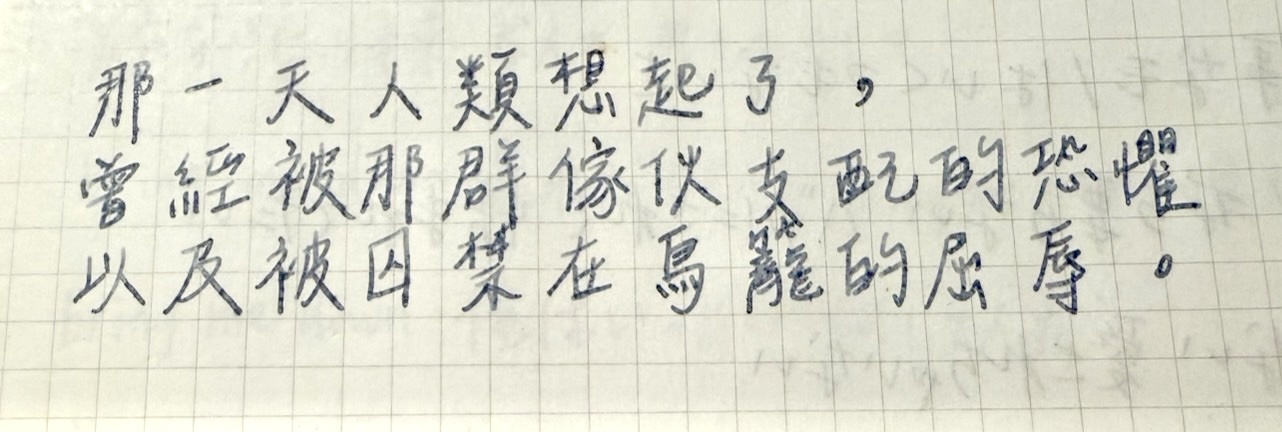 那一天人類想起了，
曾經被那群傢伙支配的恐懼
以及被囚禁在鳥籠的屈辱。